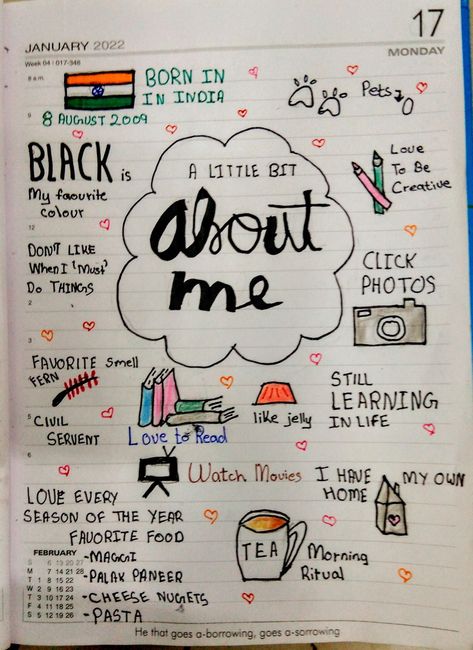 17
JANUARY 2022
MONDAY
Week 04 | 017-348
8 a.m.
BORN IN
IN INDIA
Pets
0
9
8 AUGUST 2009
BLACK is
My favourite
colour
A LITTLE BIT
about
me
Love
To Be
Creative
12
DON'T LIKE
When I 'Must'
Do THINGS
CLICK
PHOTOS
2
3
FAVORITE Smell
FERN
STILL
LEARNING
IN LIFE
like jelly
5
CIVIL
SERVENT
Love to Read
6
Watch Movies
I HAVE MY OWN
HOME
LOVE EVERY
SEASON OF THE YEAR
FAVORITE FOOD
-MAGGI
-PALAK PANEER
-CHEESE NUGGETS
-PASTA
TEA
Morning
Ritual
FEBRUARY
S 6 13 20 27
M 7 14 21 28
T 1 8 15 22
W 2 9 16 23
T 3 10 17 24
F 4 11 18 25
S 5 12 19 26
He that goes a-borrowing, goes a-sorrowing